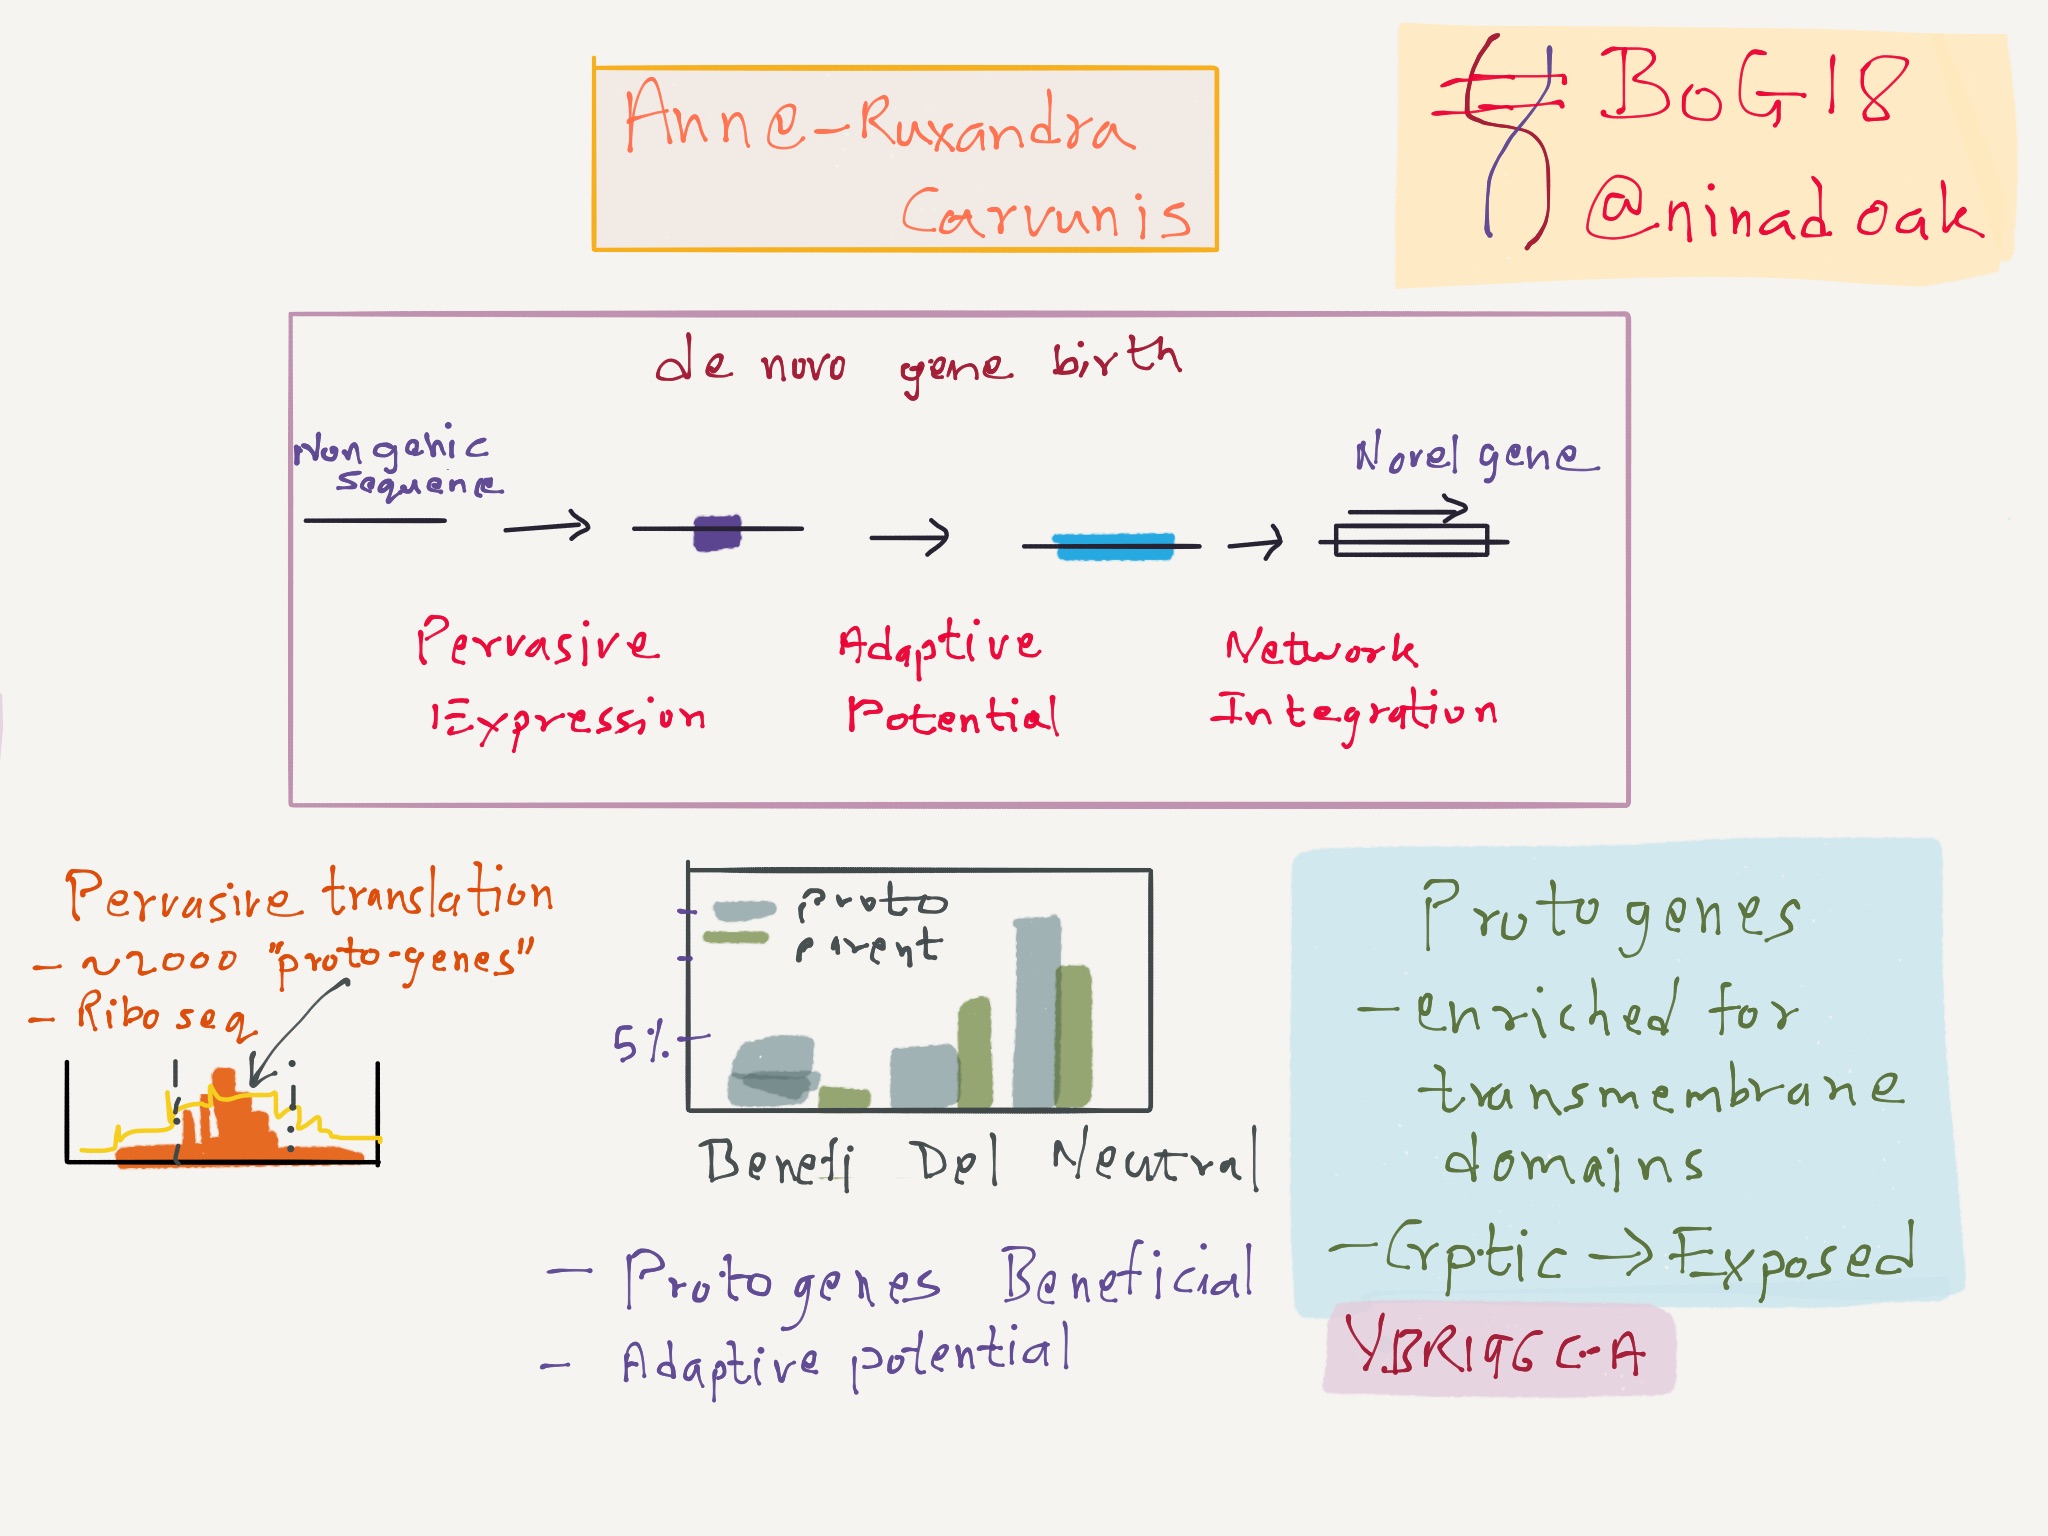 Anne-Ruxandra
Carvunis
# BoG18
@ninad oak
de novo gene birth
Non genic
sequence
Novel gene
Pervasive
Expression
Adaptive
Potential
Network
Integration
Pervasive translation
- ~2000 "proto-genes"
- Ribo seq
Proto
parent
5%
Benefi Del Neutral
- Proto genes Beneficial
- Adaptive potential
Proto genes
- enriched for
transmembrane
domains
- Crptic → Exposed
YBR196C-A